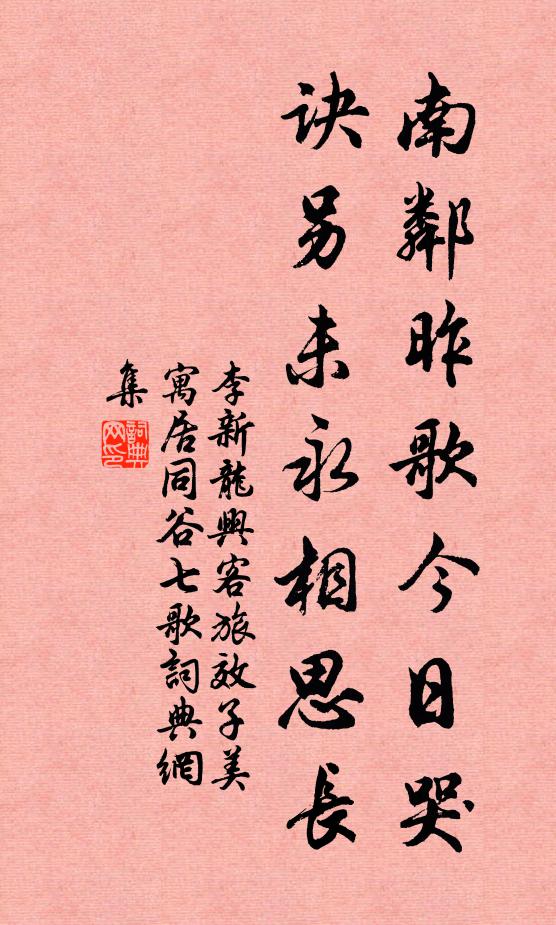 南鄰昨歌今日哭
訣另未永相思長
李新龍興客旅效子美
寓居同谷七歌詞典網
集
詞典网印